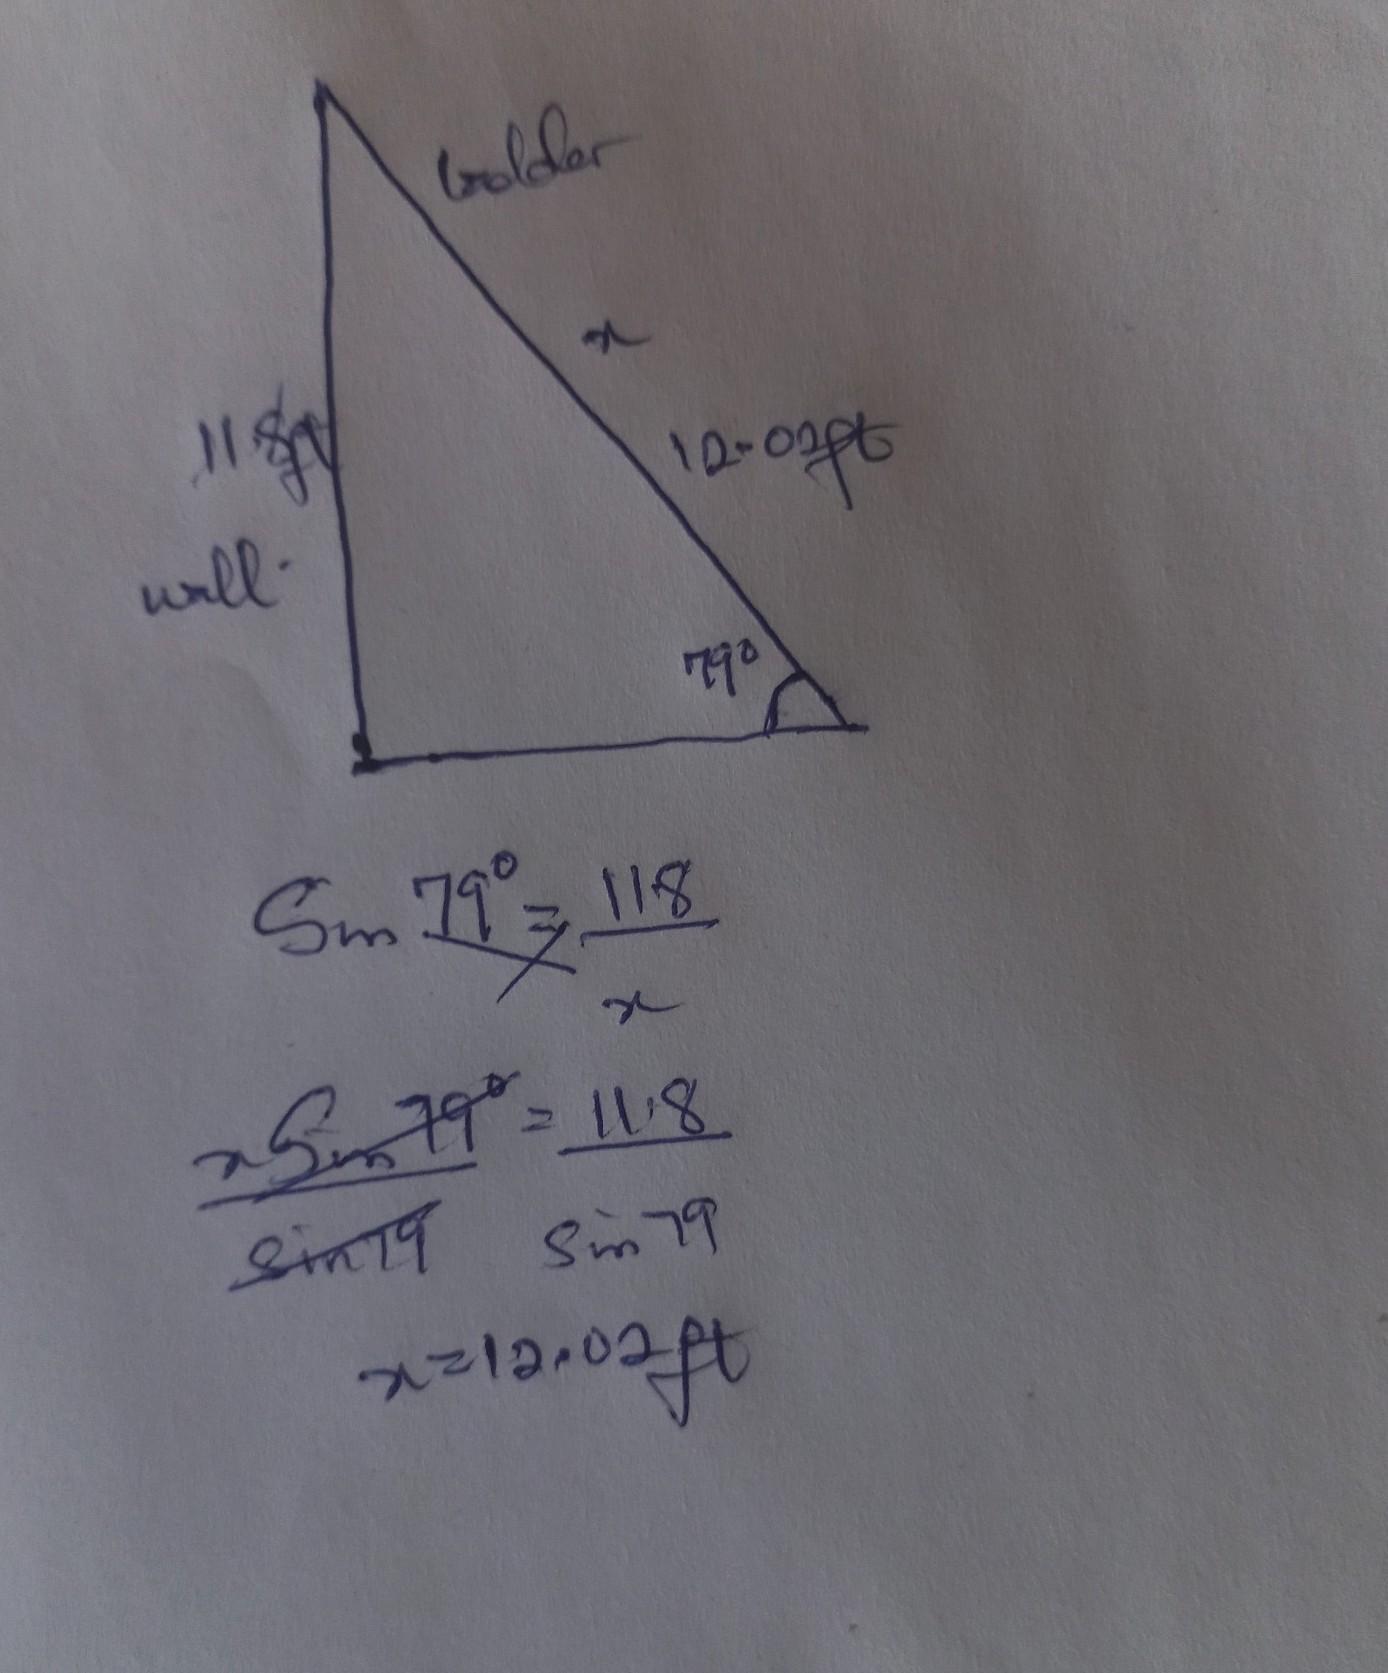 ladder
x
11.8ft
12.02ft
wall
79°
Sin 79° = 11.8
x
x Sin 79° = 11.8
sin 79 sin 79
x = 12.02ft